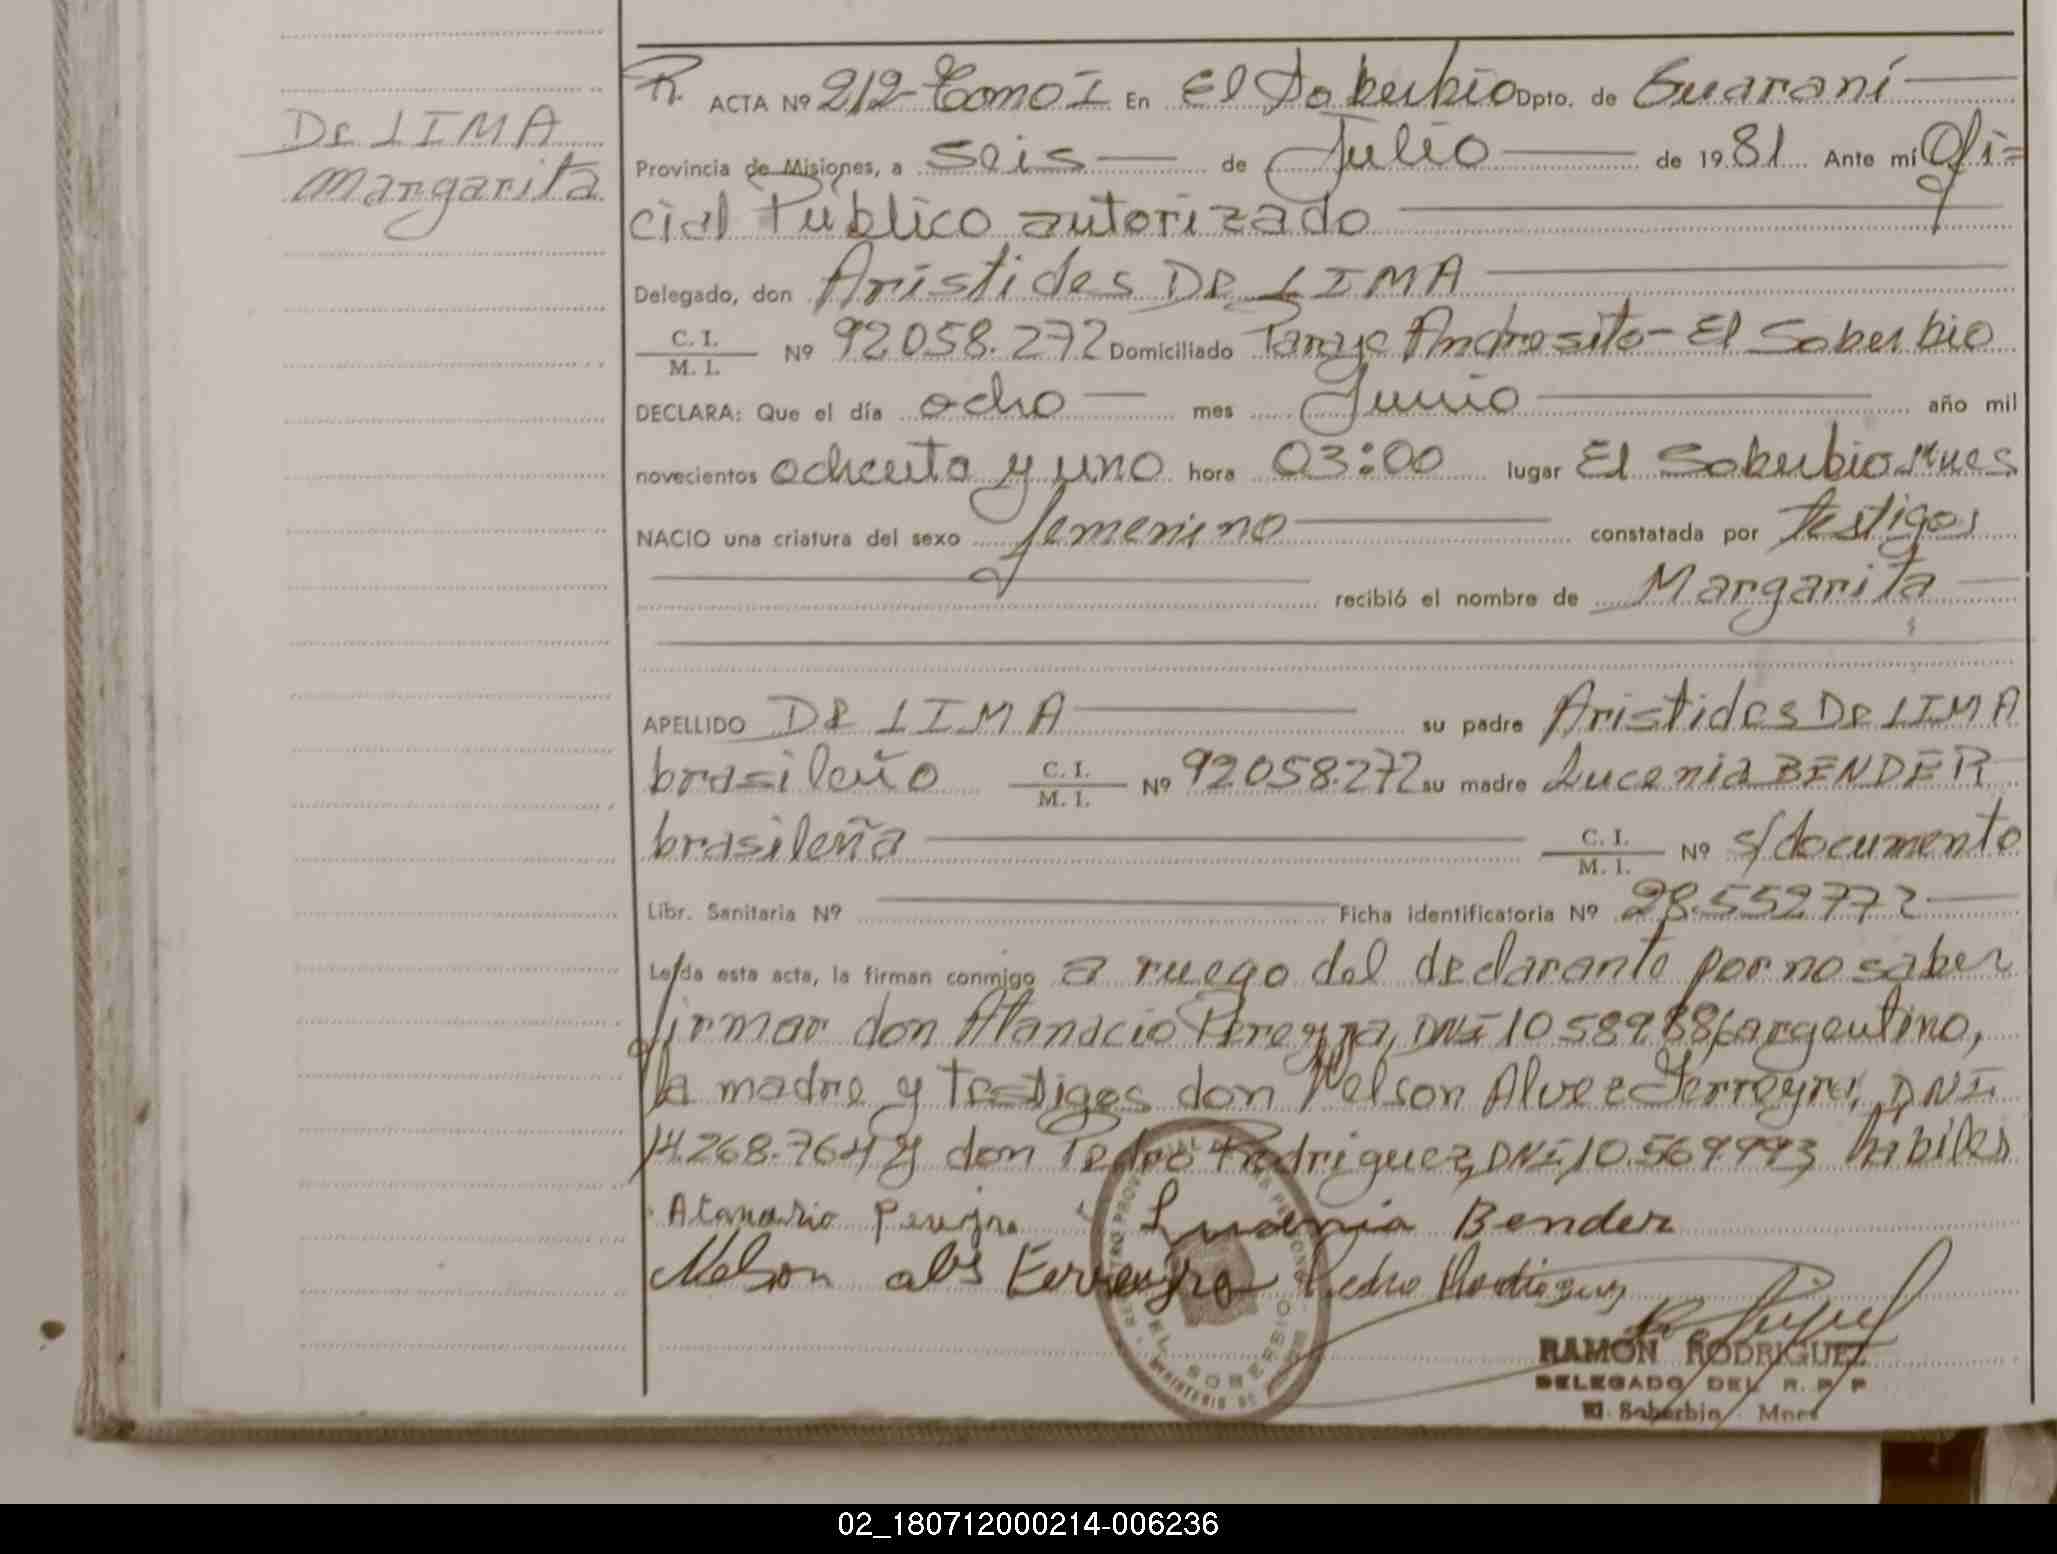 De LIMA
Margarita
R. ACTA Nº 212 - Tomo I En El Soberbio Dpto. de Guaraní
Provincia de Misiones, a seis de Julio de 1981 Ante mí Ofi=
cial Publico autorizado
Delegado, don Arístides De LIMA
C. I.
M. I. Nº 92.058.272 Domiciliado Paraje Andresito - El Soberbio
DECLARA: Que el día ocho mes Junio año mil
novecientos ochenta y uno hora 03:00 lugar El Soberbio Mnes
NACIO una criatura del sexo femenino constatada por testigos
recibió el nombre de Margarita
APELLIDO De LIMA su padre Aristides De LIMA
brasileño C. I.
M. I. Nº 92.058.272 su madre Lucenia BENDER
brasileña C. I.
M. I. Nº s/documento
Libr. Sanitaria Nº Ficha identificatoria Nº 28.552772
Leída esta acta, la firman conmigo a ruego del declarante por no saber
firmar don Atanacio Pereyra, DNI 10.589.886 argentino,
la madre y testigos don Nelson Alves Ferreyra, DNI
14.268.764 y don Pedro Rodriguez, DNI 10.569993 hábiles
Atanacio Pereyra Lucenia Bender
Nelson als Ferreyra Pedro Rodriguez
RAMON RODRIGUEZ
DELEGADO DEL R. P. P
El Soberbio - Mnes
EL SOBERBIO
02_180712000214-006236